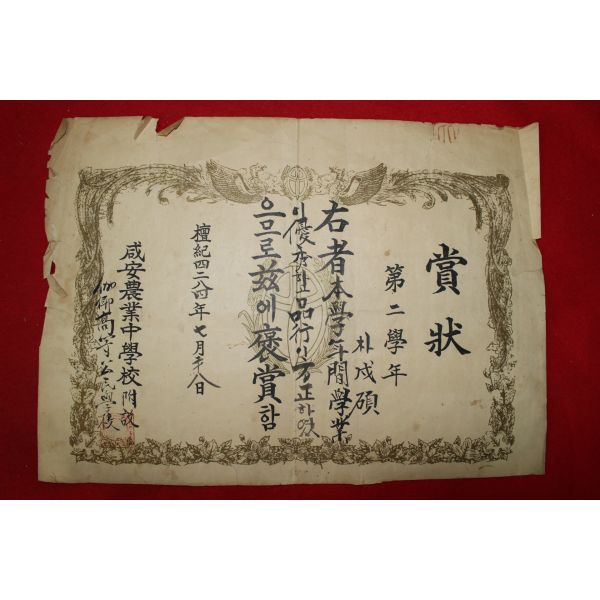 賞狀
第二學年
朴戊碩
右者本學年間學業
이優秀하고品行이方正하였
으므로玆에褒賞함
檀紀四二八四年七月廿八日
咸安農業中學校附設
伽倻高等公民學校